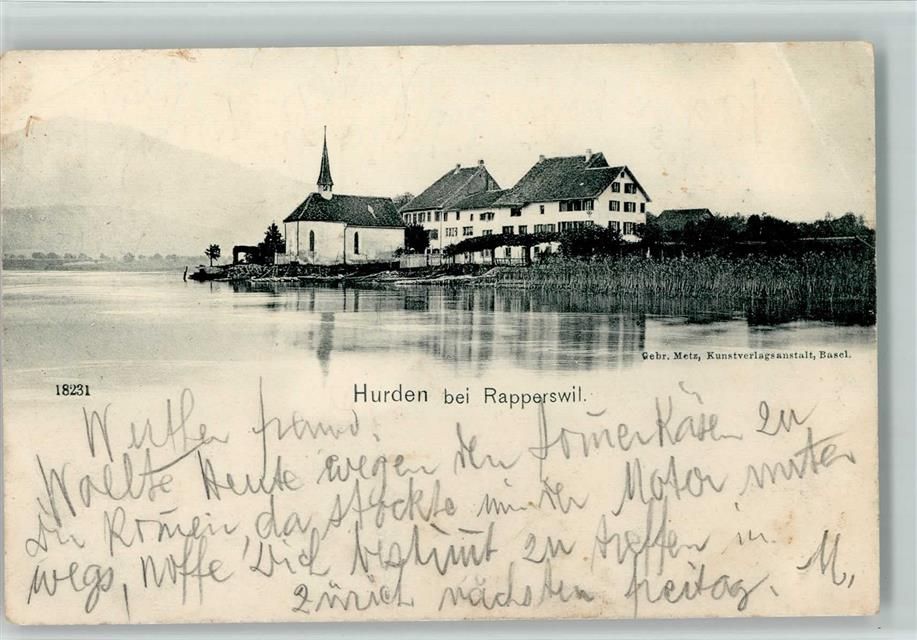 Gebr. Metz, Kunstverlagsanstalt, Basel.
18231
Hurden bei Rapperswil.
Werther
Wollte Heute wegen den zu
Dir kom̄en, da stockte mir der Motor unter
wegs, hoffe Dich bestim̄t zu treffen in
Zürich nächsten Freitag. M.